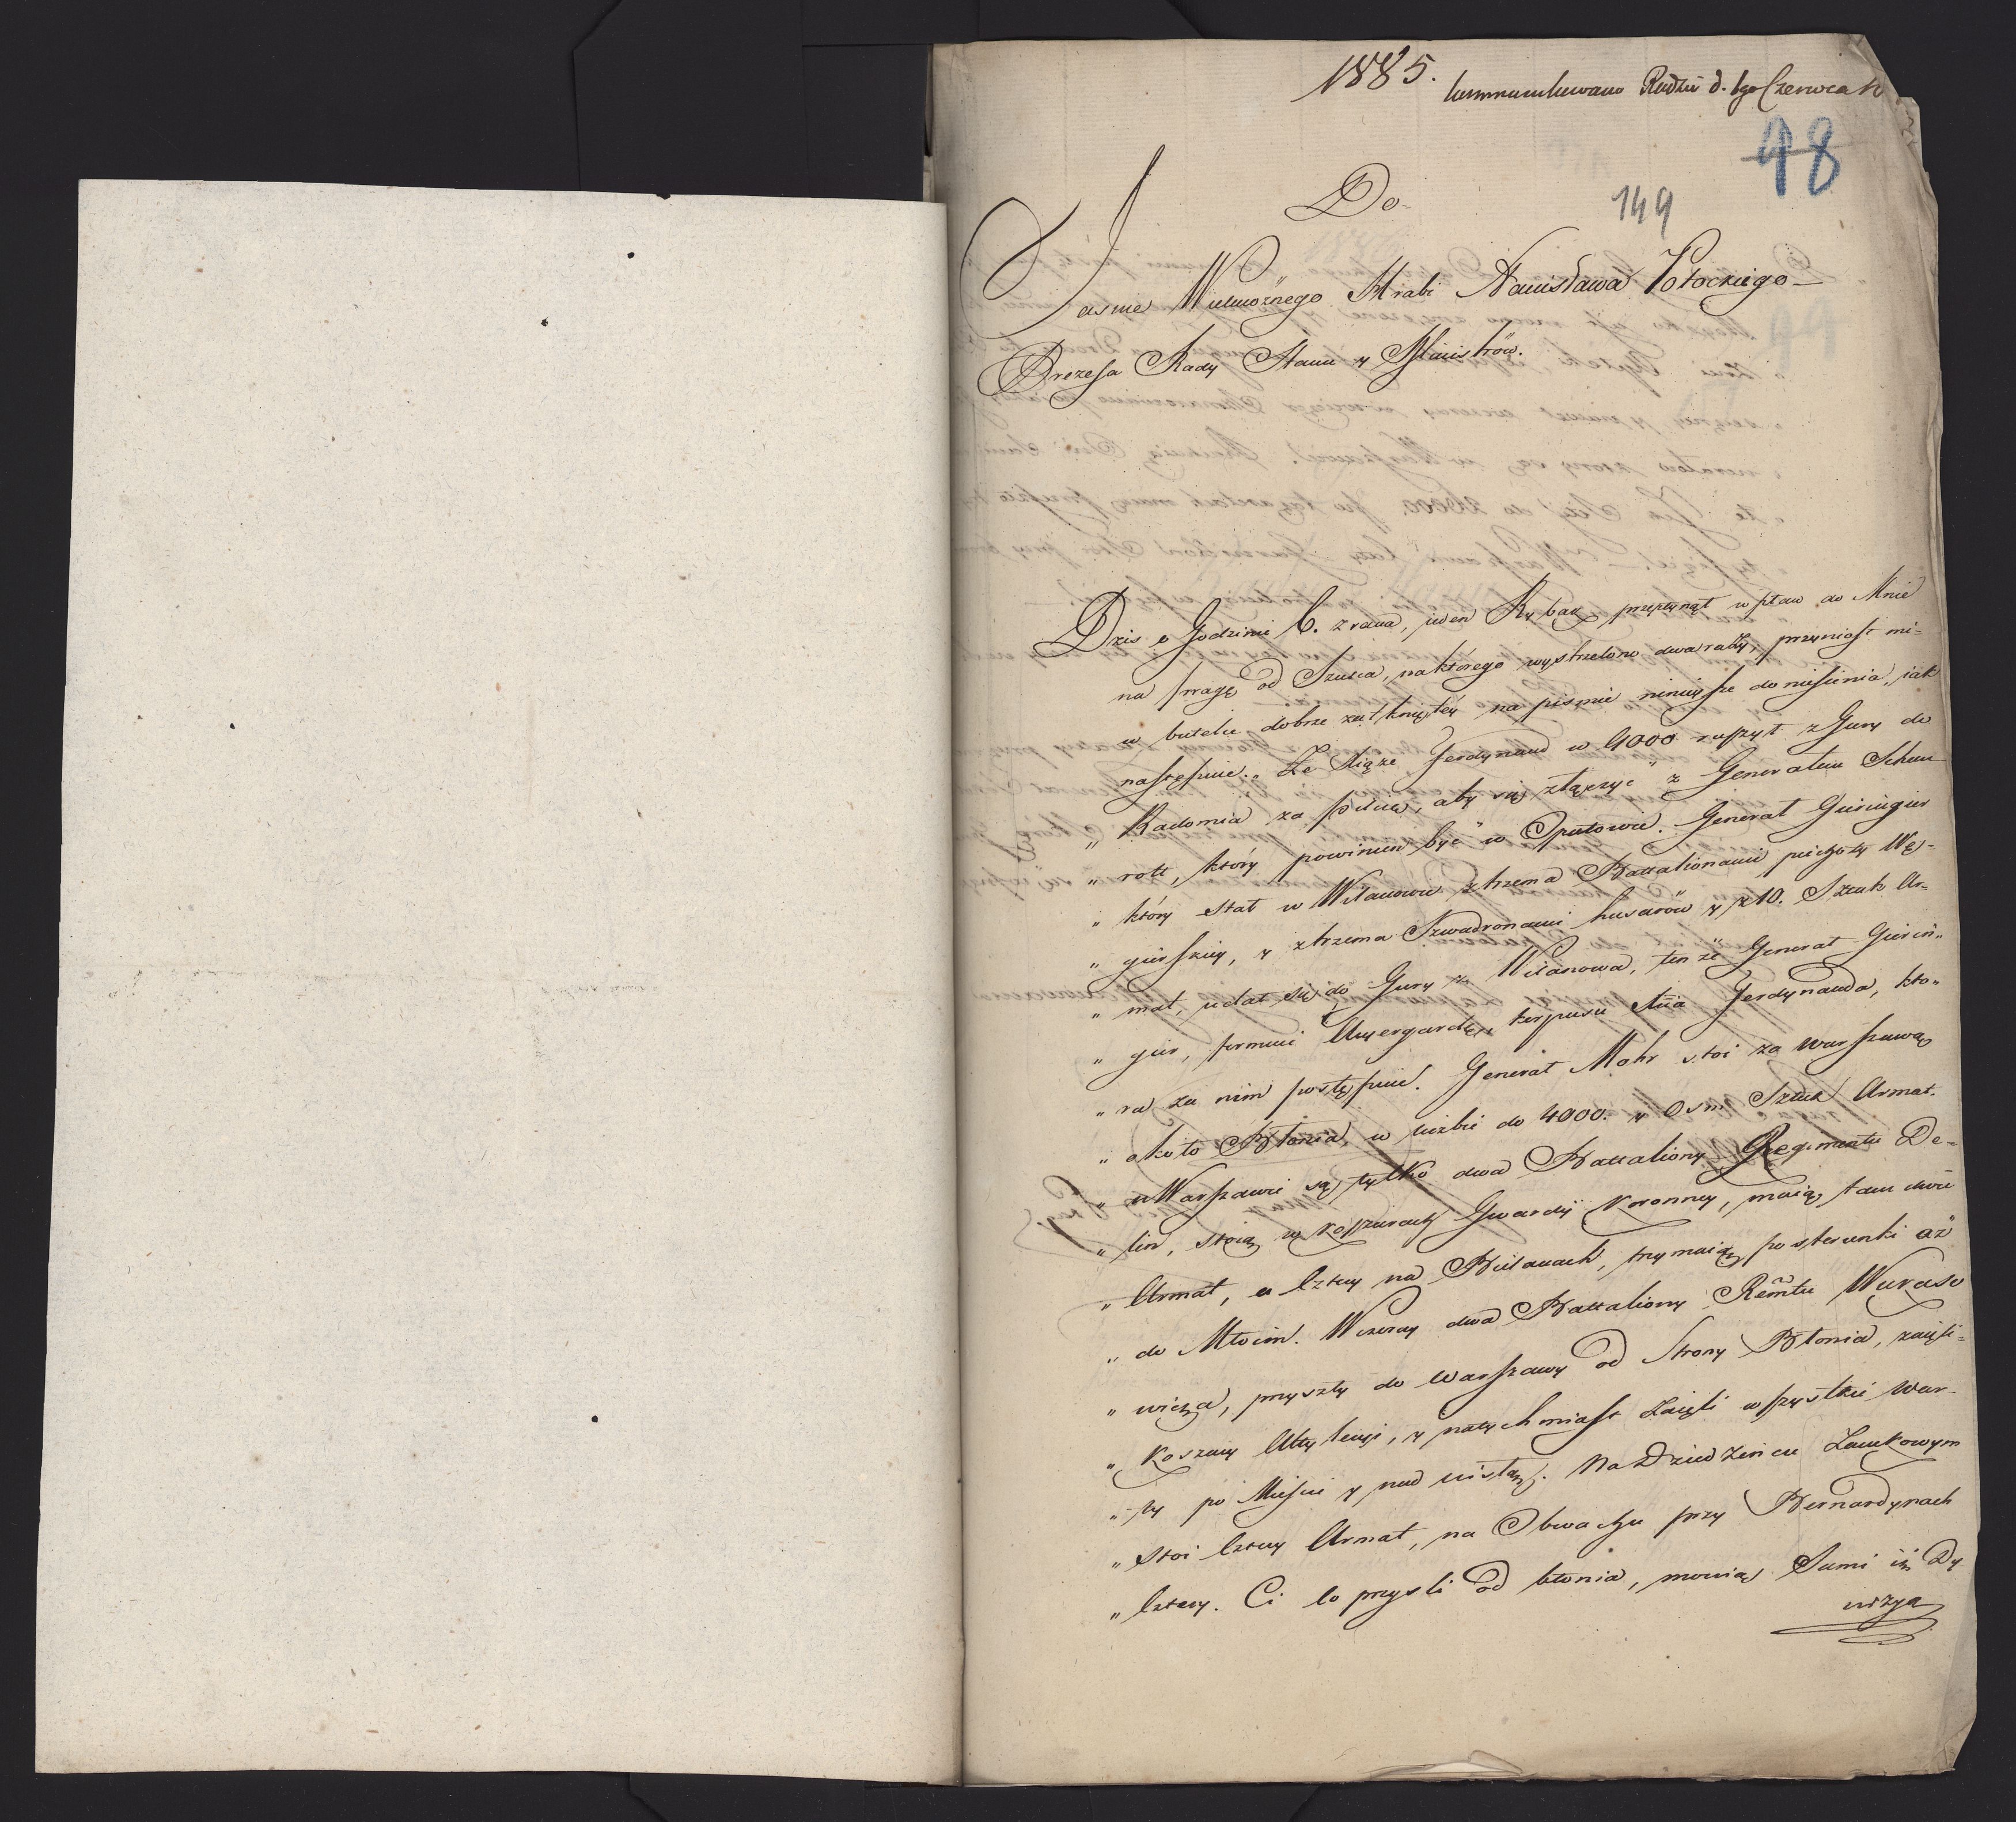 1885.
kommunikowano Radzie d. 1go Czerwca
48
149
Do
Jasnie Wielmożnego Hrabi Stanisława Potockiego
Prezesa Rady Stanu y Ministrów.
Dzis o Godzinie 6. z rana, ieden Rybak przepłynął w pław do Mnie
na pragę od Szulca, na którego wystrzelono dwa razy, przyniosł mi
w butelce dobrze zatkniętey na pismie ninieysze doniesienia, iak
następuie. „ Że Xiąże Ferdynand w 4000 ruszył z Gury do
„ Radomia za pilicę, aby się złączyć z Generałem Schau-
„ rott, który powinien być w Opatowie. Generał Gieringier
„ który stał w Wilanowie z trzema Battalionami piechoty Wę-
„ gierskiey, y z trzema Szwadronami husarów y z 10. Sztuk Ar-
„ mat, udał się do Gury z Wilanowa, ten że Generał Gierin-
„ gier, formuie Awergardę, korpusu Xcia Ferdynanda, któ-
„ ra za nim postępuie. Generał Mohr stoi za warszawą
„ około Błonia, w liczbie do 4000. y Osm Sztuk Armat.
„ w Warszawie są tylko dwa Battaliony Regimentu De-
„ lin, stoią w koszarach Gwardyi Koronney, maią tam dwie
„ Armat, a cztery na Bielanach, trzymaią posterunki aż
„ do Młocin. Wczoray dwa Battaliony Remtu Wukaso
„ wicza, przyszły do Warszawy od Strony Błonia, zaięli
„ Koszary Artyleryi, y natychmiast zaięli wszystkie war-
„ ty po Mieście y nad wisłą. Na Dziedzincu Zamkowym
„ stoi cztery Armat, na Obwachu przy Bernardynach
„ cztery. Ci co przyszli od błonia, mowią Sami iż Dy
wizya